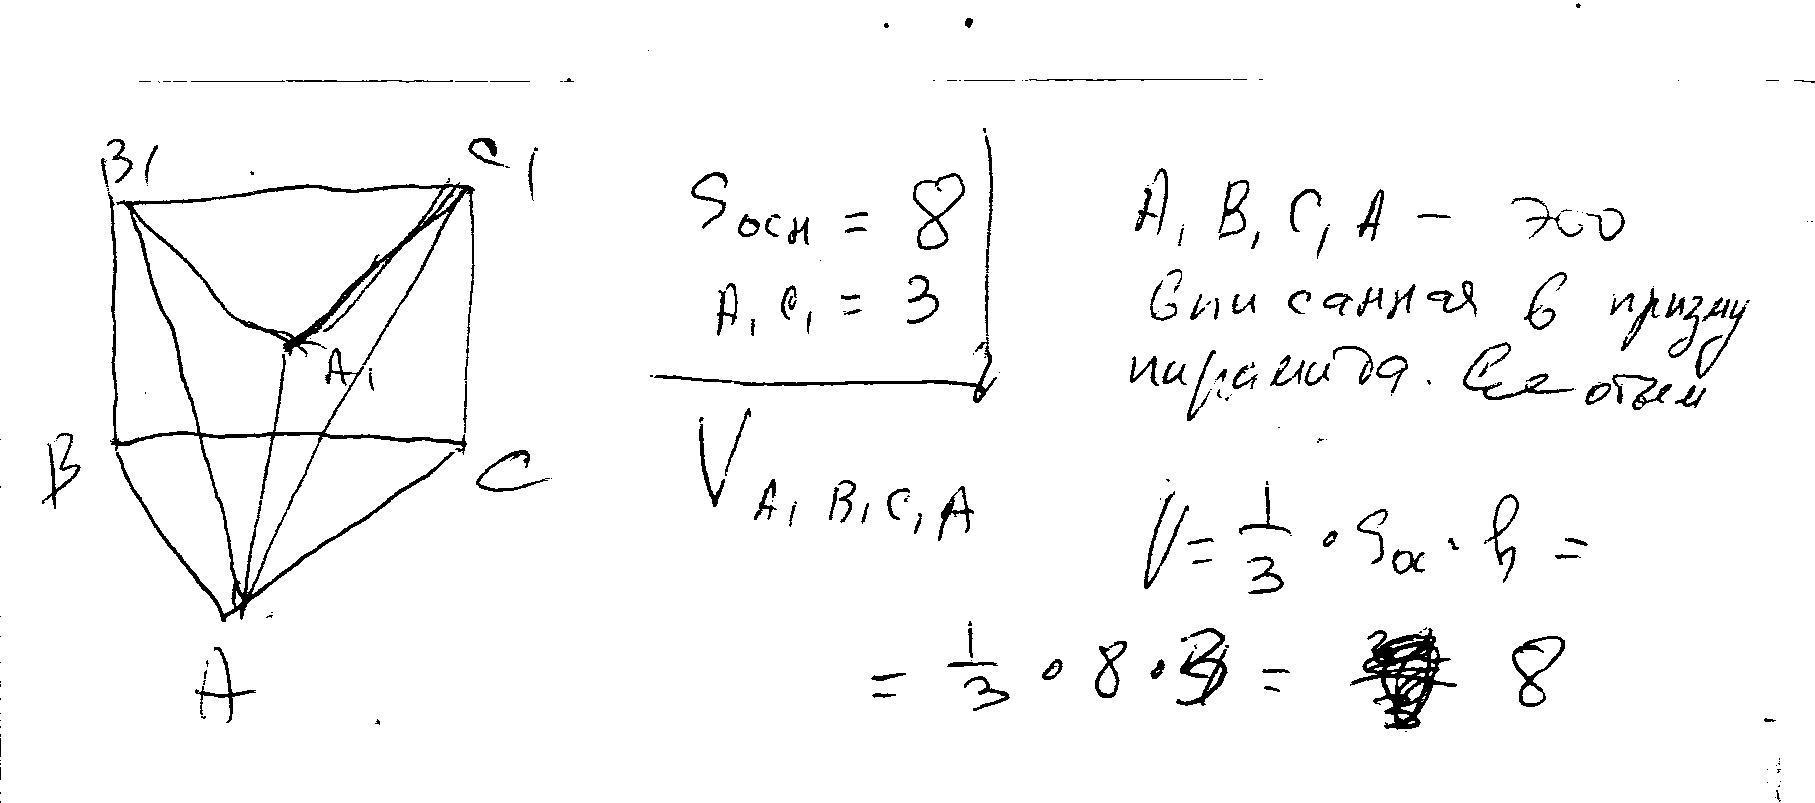 B1 C1
A1
B C
A
Sосн = 8
A1C1 = 3
V A1B1C1A
A1B1C1A – это
вписанная в призму
пирамида. Ее объем
V = 1/3 · Sос · h =
= 1/3 · 8 · 3 = 8